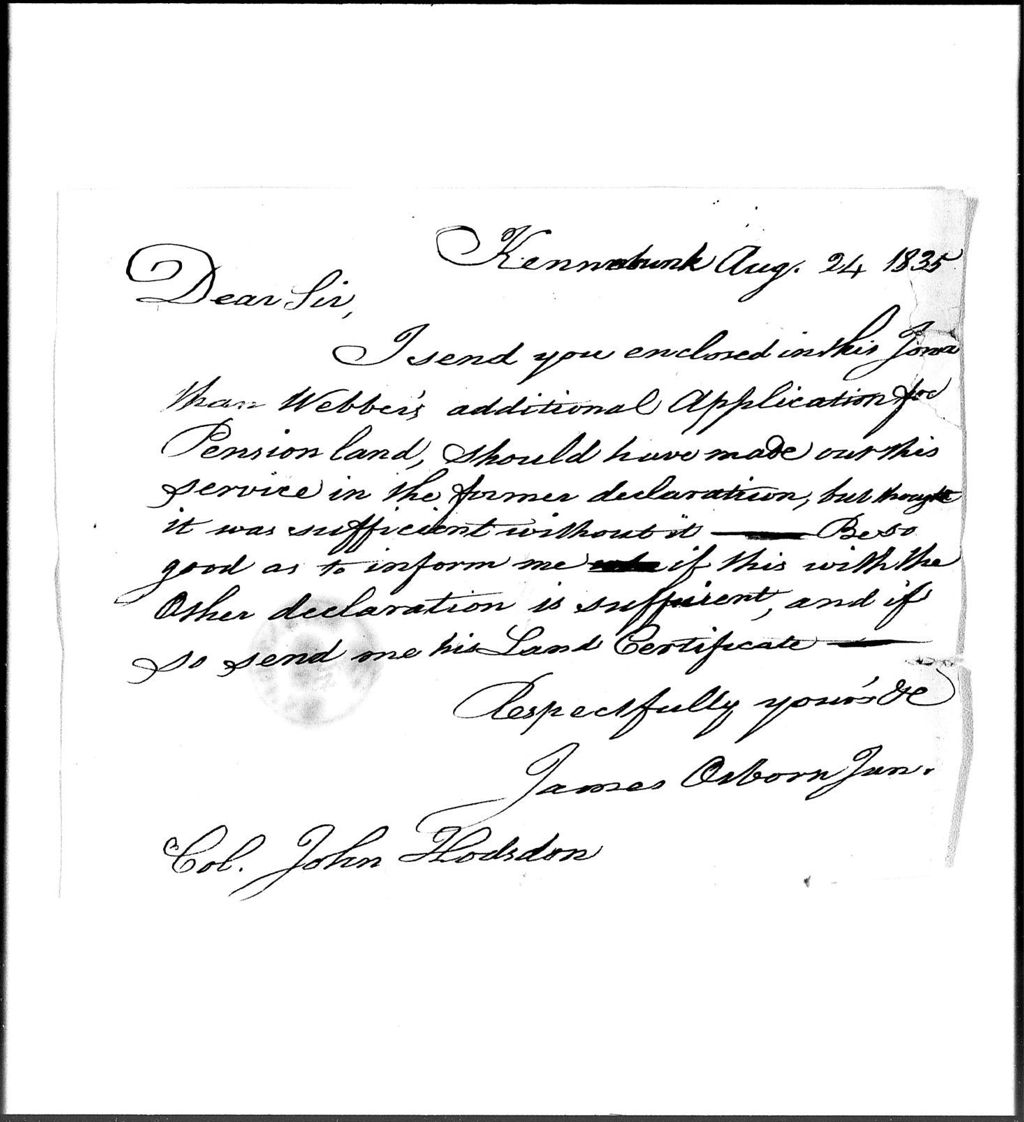 Kennebunk Aug. 24 1835
Dear Sir,
I send you enclosed in this Jona
than Webber's additional Application for
Pension land, should have made out this
service in the former declaration, but thought
it was sufficient without it — Be so
good as to inform me if this with the
Other declaration is sufficient, and if
so send me his Land Certificate —
Respectfully your's &c
James Osborn Jun.
Col. John Hodsdon